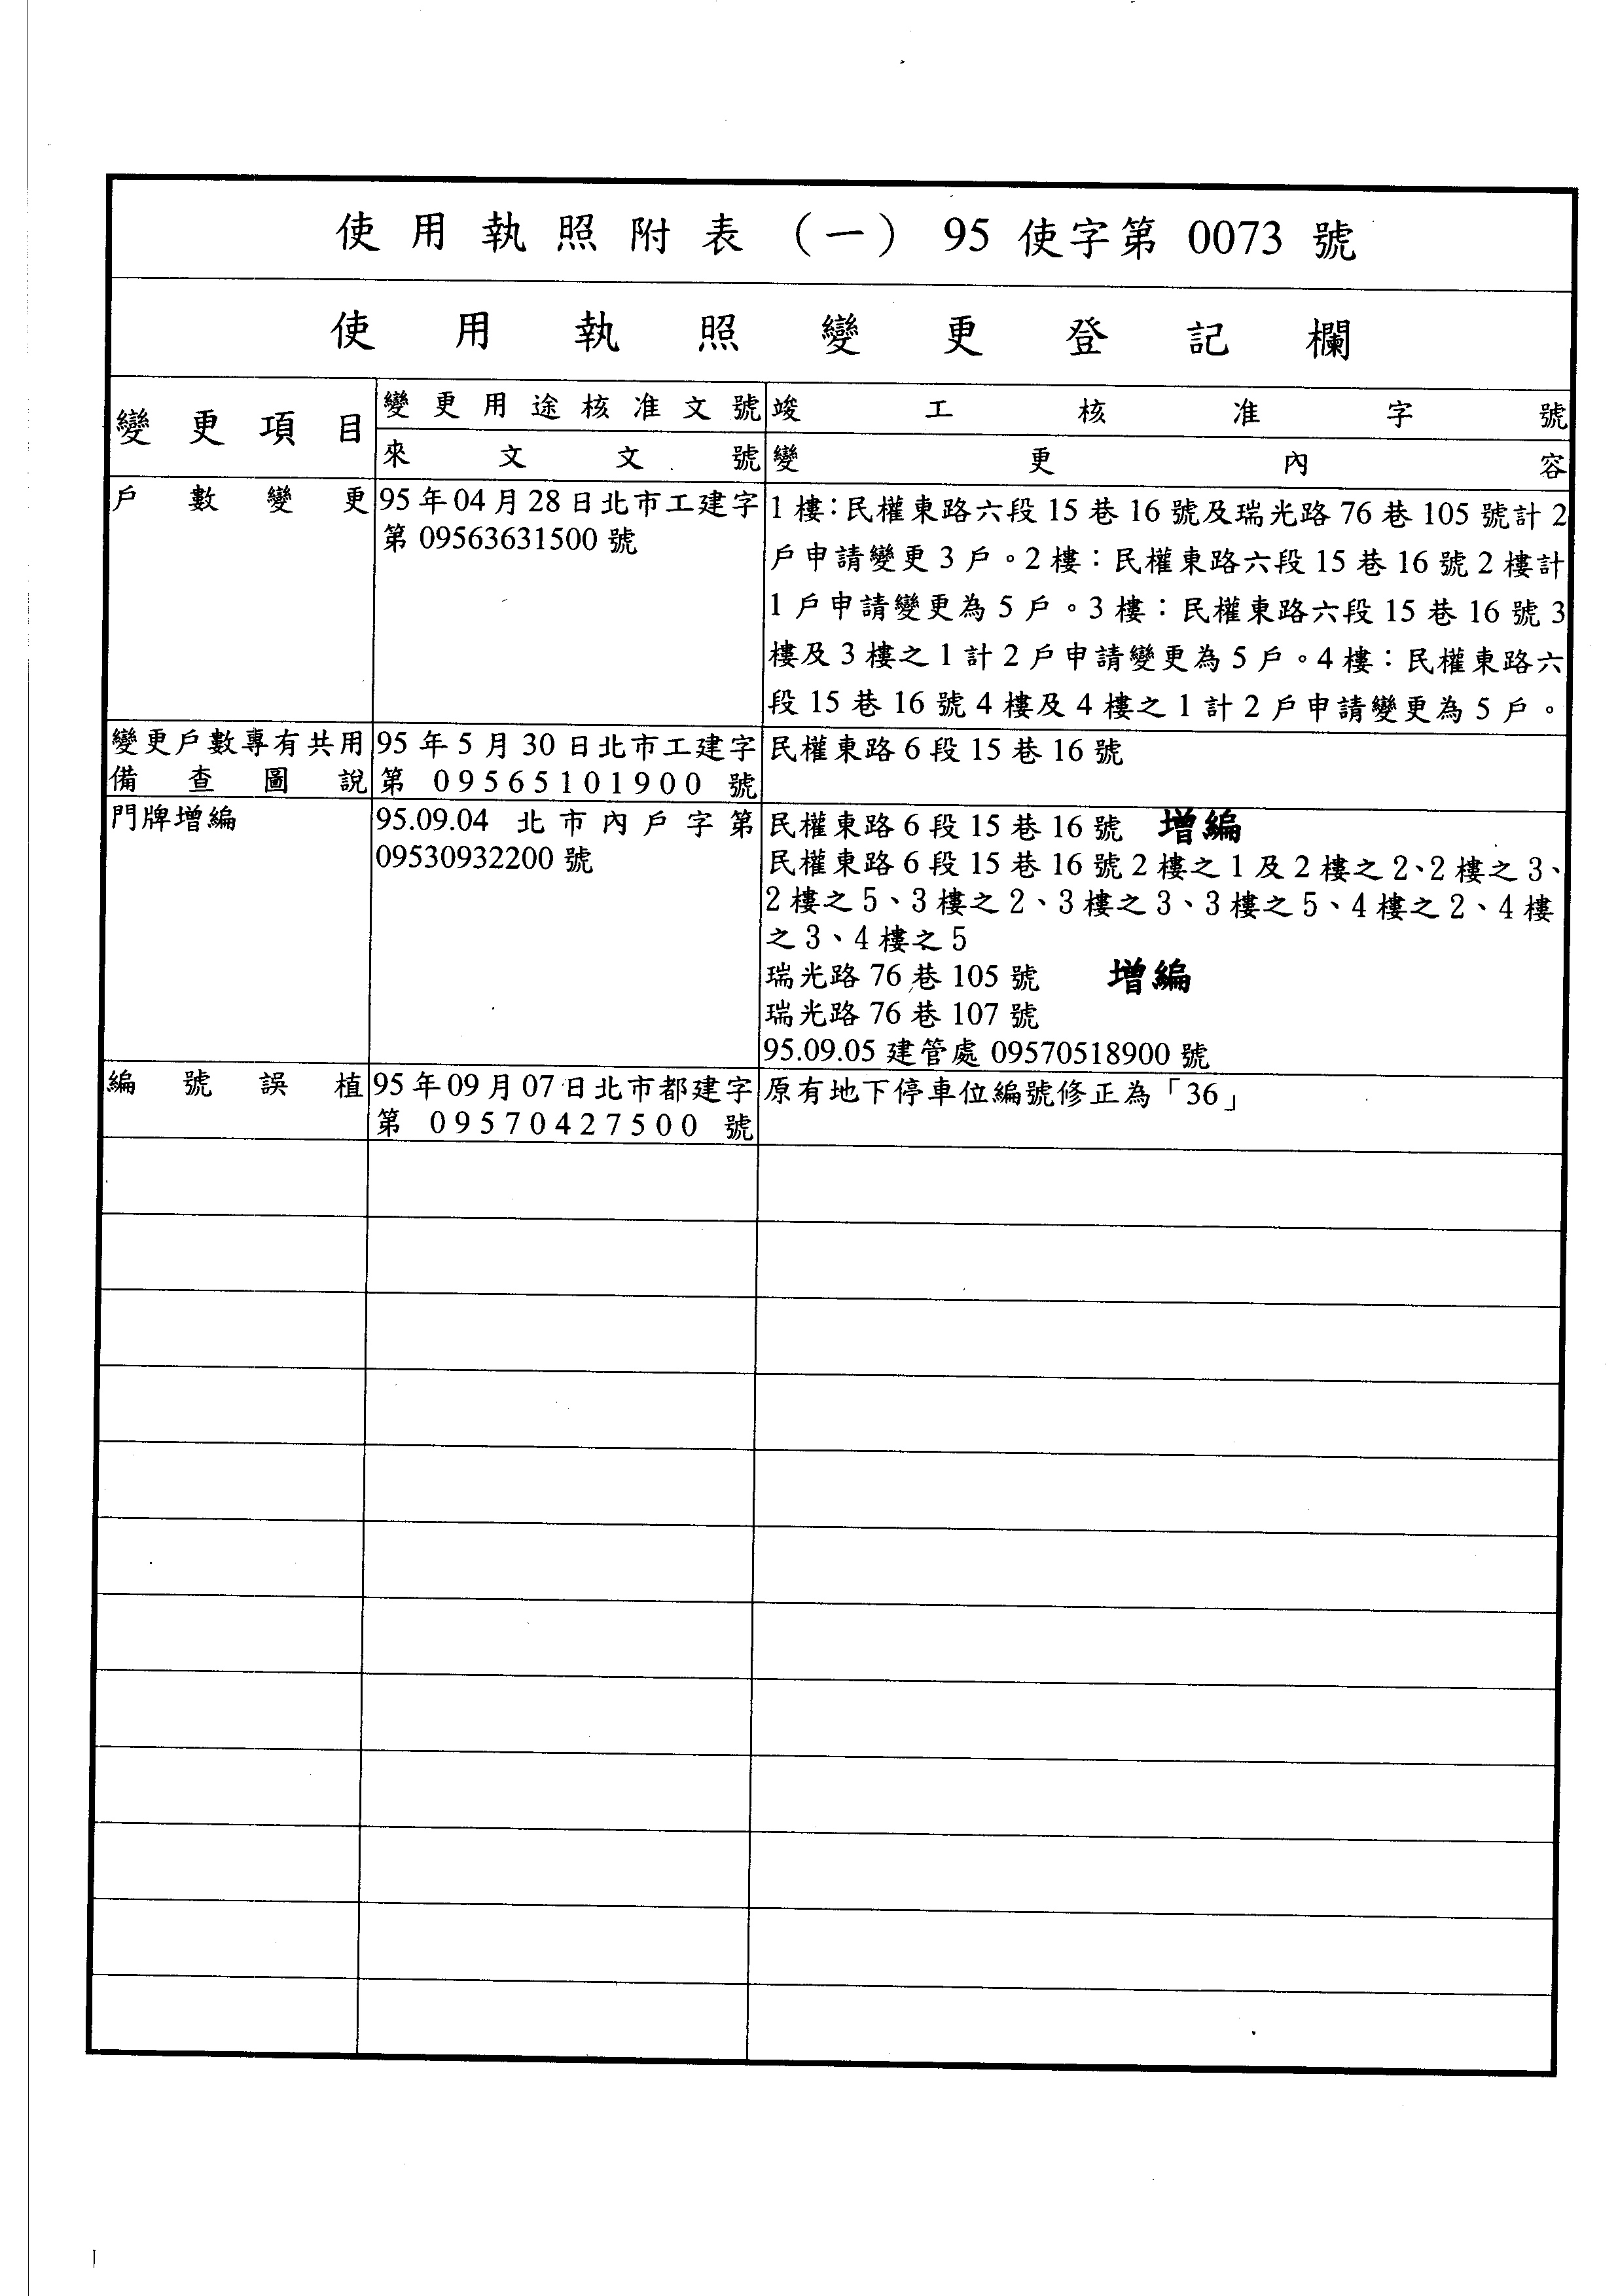 使用執照附表（一）95 使字第 0073 號
使用執照變更登記欄
變更項目
變更用途核准文號
竣工核准字號
來文文號
變更內容
戶數變更
95年04月28日北市工建字
第 09563631500 號
1樓：民權東路六段15巷16號及瑞光路76巷105號計2
戶申請變更3戶。2樓：民權東路六段15巷16號2樓計
1戶申請變更為5戶。3樓：民權東路六段15巷16號3
樓及3樓之1計2戶申請變更為5戶。4樓：民權東路六
段15巷16號4樓及4樓之1計2戶申請變更為5戶。
變更戶數專有共用
備查圖說
95年5月30日北市工建字
第 09565101900 號
民權東路6段15巷16號
門牌增編
95.09.04 北市內戶字第
09530932200 號
民權東路6段15巷16號 增編
民權東路6段15巷16號2樓之1及2樓之2、2樓之3、
2樓之5、3樓之2、3樓之3、3樓之5、4樓之2、4樓
之3、4樓之5
瑞光路76巷105號 增編
瑞光路76巷107號
95.09.05 建管處 09570518900 號
編號誤植
95年09月07日北市都建字
第 09570427500 號
原有地下停車位編號修正為「36」